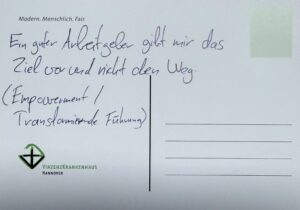 Modern. Menschlich. Fair.
Ein guter Arbeitgeber gibt mir das
Ziel vor und nicht den Weg
(Empowerment /
Transformierende Führung)
VINZENZKRANKENHAUS
HANNOVER